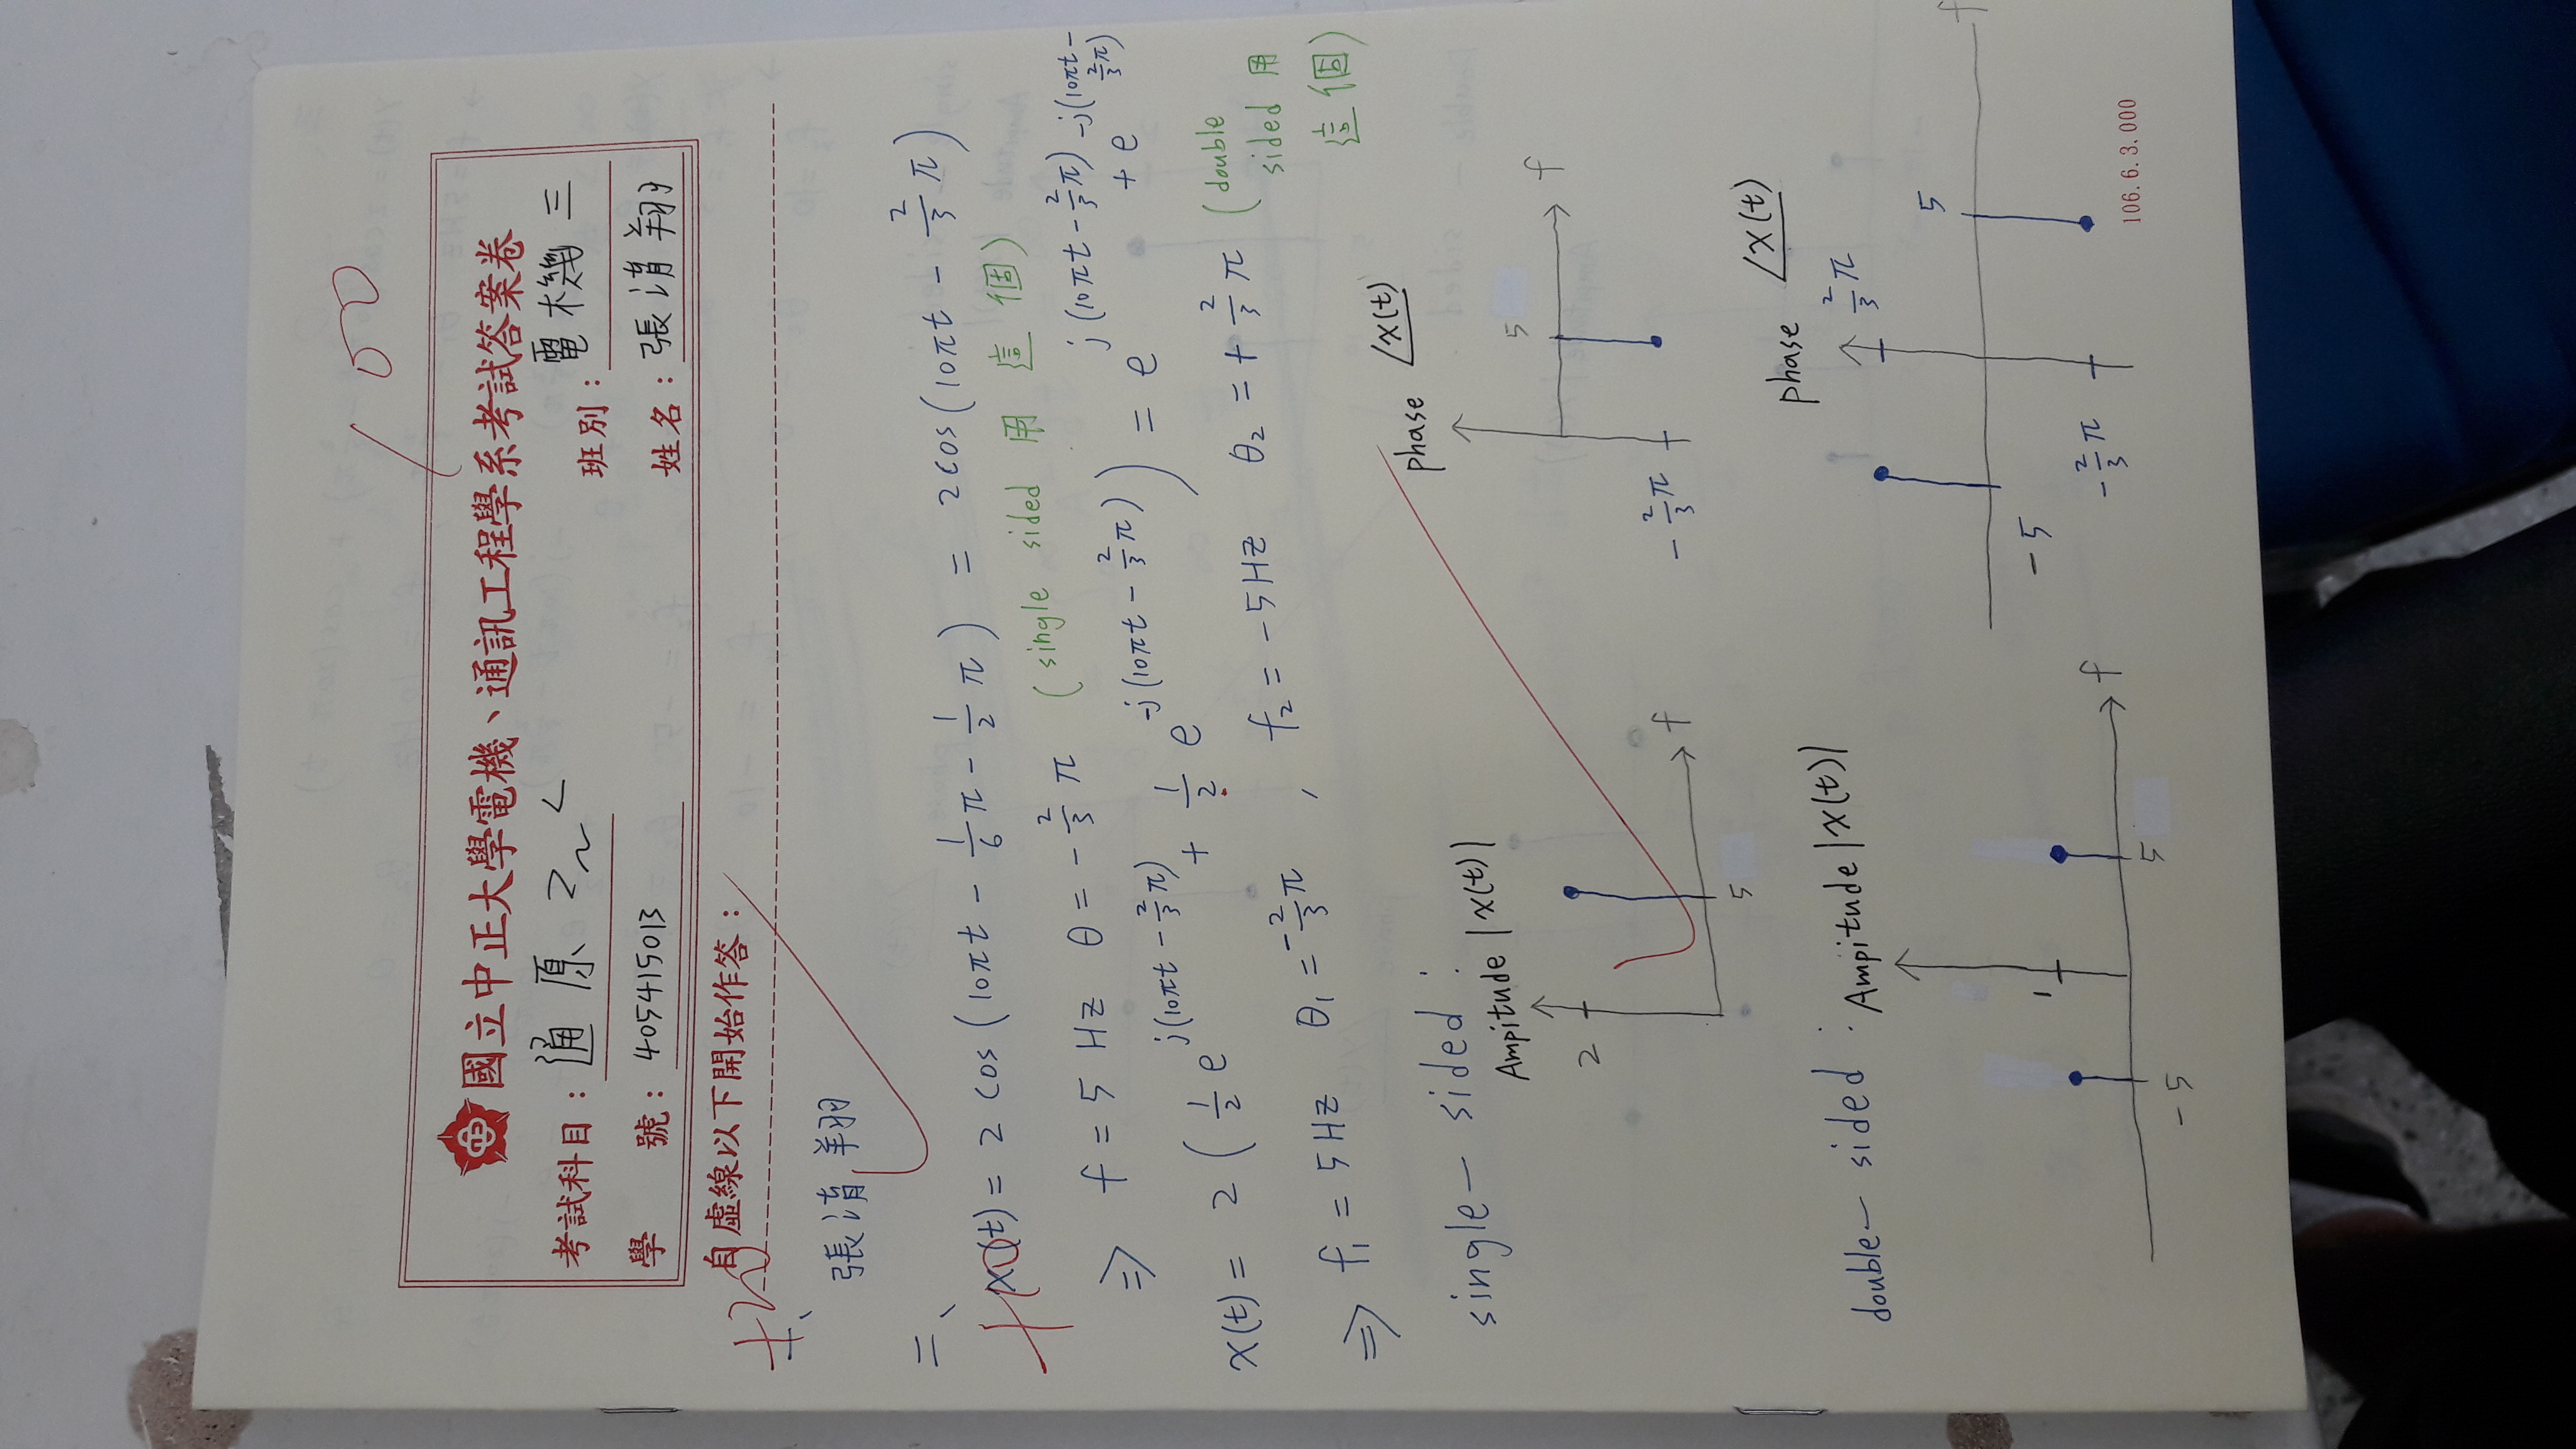 100
國立中正大學電機、通訊工程學系考試答案卷
考試科目：通原 班別：電機三
學 號：405415013 姓名：張清翔
自虛線以下開始作答：
+20
一、
張清翔
二、
+10
x(t) = 2 cos(10πt - 1/6 π - 1/2 π) = 2cos(10πt - 2/3 π)
⇒ f = 5 Hz θ = - 2/3 π (single sided 用 這 個)
x(t) = 2 ( 1/2 e^j(10πt - 2/3 π) + 1/2 e^-j(10πt - 2/3 π) ) = e^j(10πt - 2/3 π) + e^-j(10πt - 2/3 π)
⇒ f₁ = 5 Hz θ₁ = -2/3 π , f₂ = -5 Hz θ₂ = + 2/3 π (double sided 用 這個)
single-sided :
Ampitude |x(t)|
2
5
f
phase ∠x(t)
5
f
- 2/3 π
double-sided :
Ampitude |x(t)|
1
-5
5
f
phase ∠x(t)
2/3 π
5
f
-5
- 2/3 π
106.6.3.000